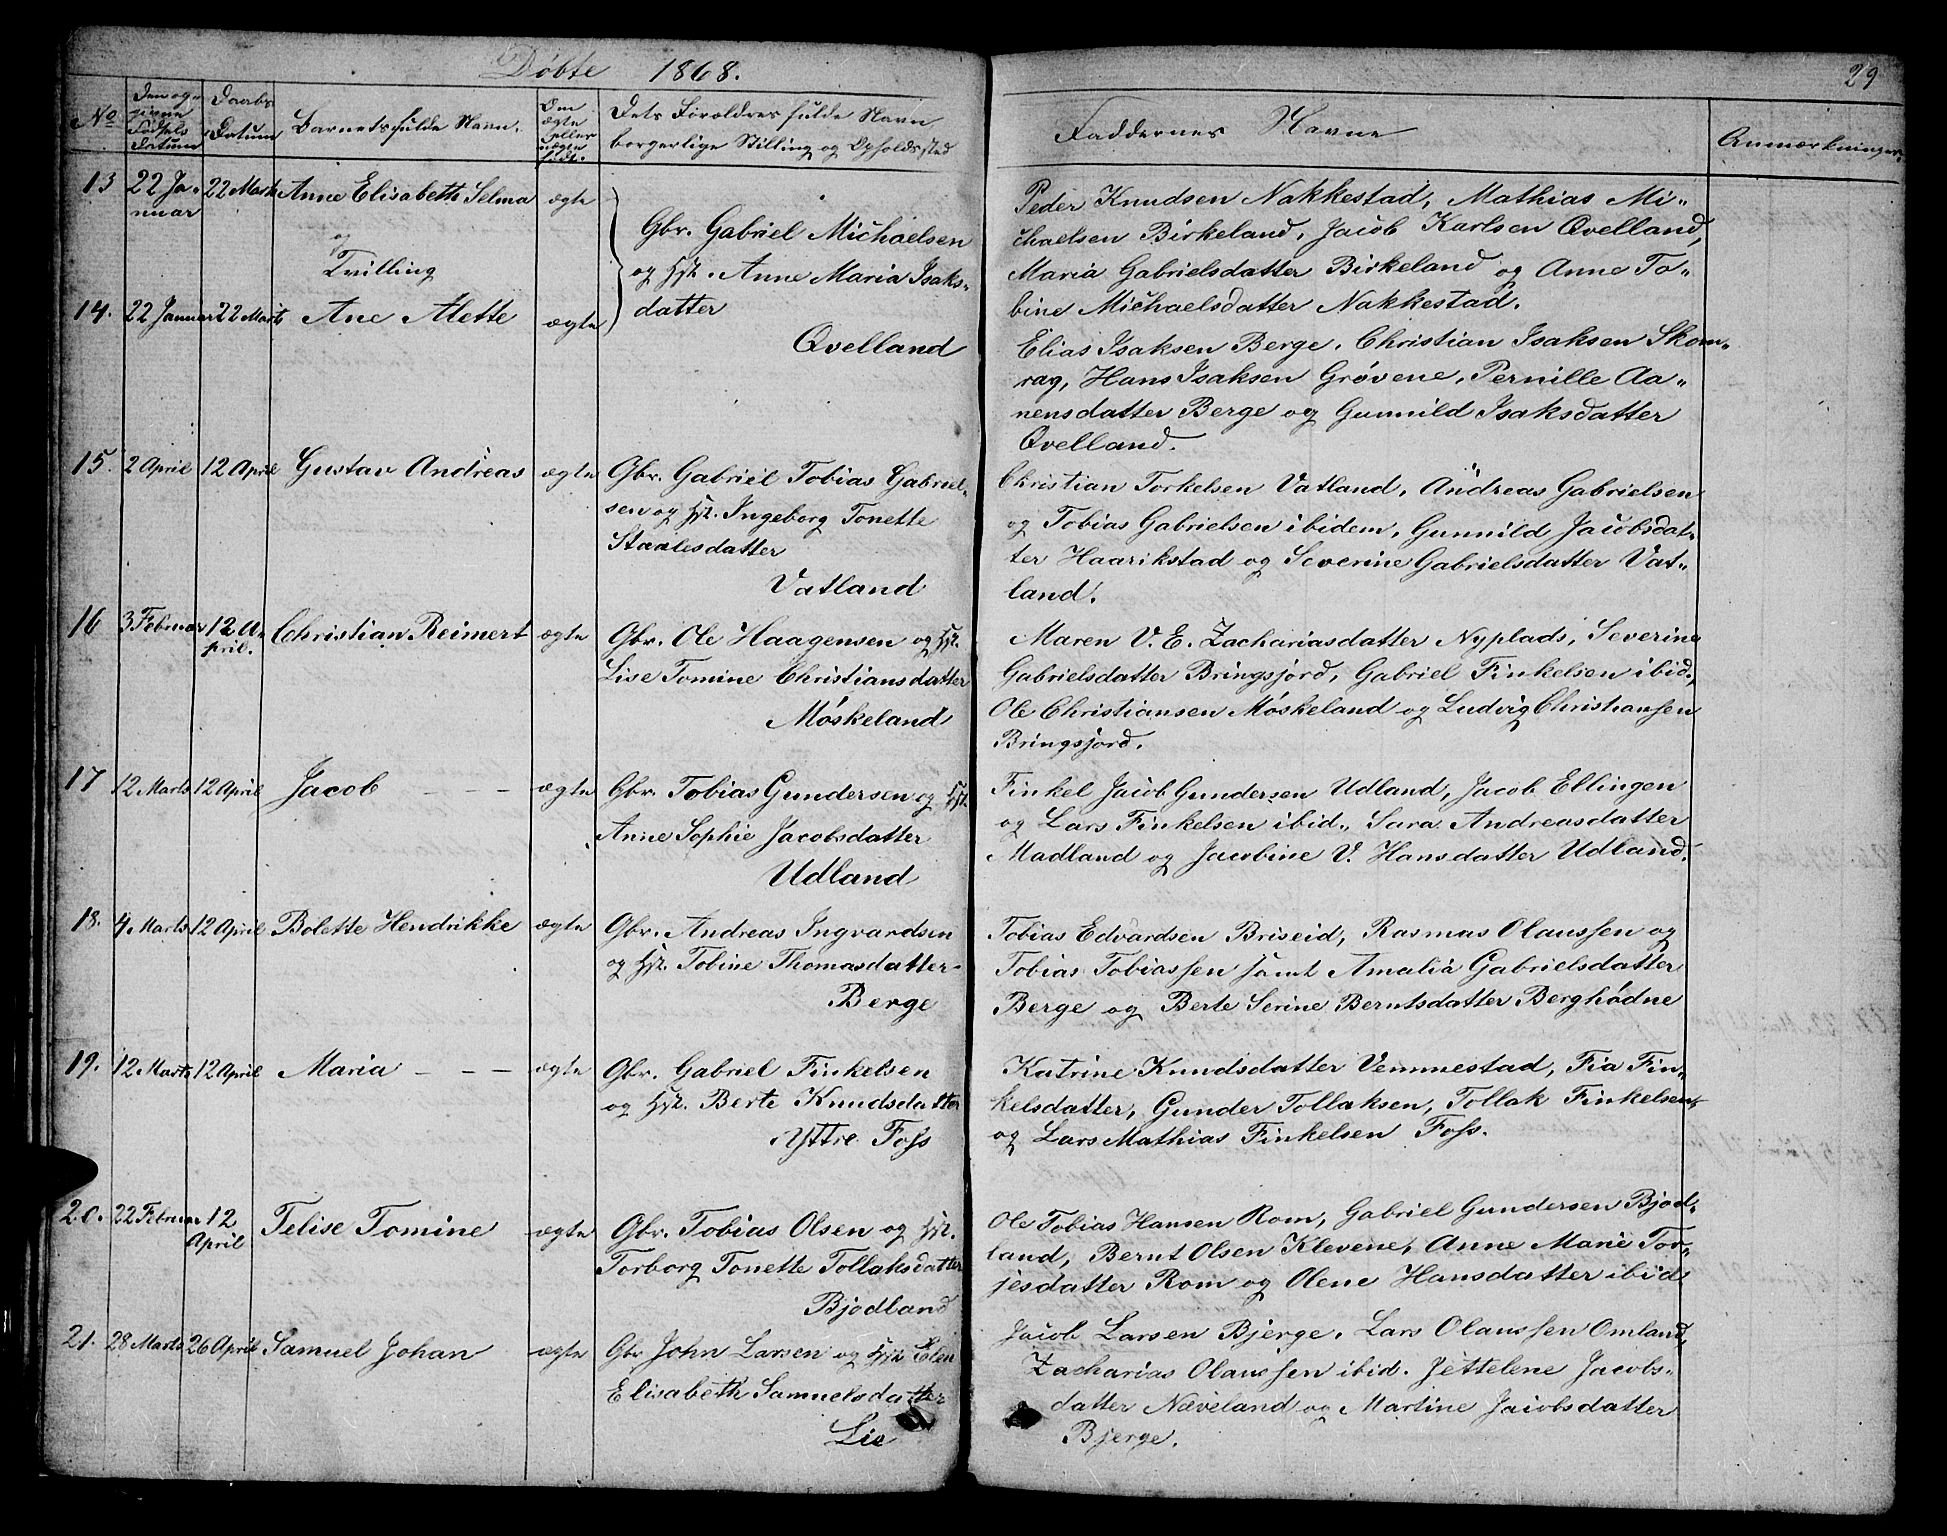 Døbte 1868.
29
No
Den op-
givne
Fødsels
Datum
Daabs
Datum
Barnets fulde Navn.
Om
ægte
eller
uægte
født.
Dets Forældres fulde Navn
borgerlige Stilling og Opholdssted
Faddernes Navne
Anmærkninger.
13 22 Ja- 22 Marts Anne Elisabeth Selma ægte
nuar
og
Tvilling
Gbr. Gabriel Michaelsen
og Hst. Anne Maria Isaks-
datter
Qvelland
Peder Knudsen Nakkestad, Mathias Mi-
chaelsen Birkeland, Jacob Karlsen Qvelland,
Maria Gabrielsdatter Birkeland og Anne To-
bine Michaelsdatter Nakkestad.
14. 22 Januar 22 Marts Ane Alette ægte
Elias Isaksen Berge, Christian Isaksen Skom-
rag, Hans Isaksen Grövene, Pernille Aa-
nensdatter Berge og Gunnild Isaksdatter
Qvelland.
15. 2 April 12 April Gustav Andreas ægte Gbr. Gabriel Tobias Gabriel-
sen og Hst. Ingeborg Tonette
Staalesdatter
Vatland
Christian Torkelsen Vatland, Andreas Gabrielsen
og Tobias Gabrielsen ibidem, Gunnild Jacobsdat-
ter Haarikstad og Severine Gabrielsdatter Vat-
land.
16 3 Februar 12 A- Christian Reimert ægte Gbr. Ole Haagensen og Hst.
pril.
Lise Tomine Christiansdatter
Móskeland
Maren V. E. Zachariasdatter Nyplads, Severine
Gabrielsdatter Bringsjord, Gabriel Finkelsen ibid.,
Ole Christiansen Móskeland og Ludvig Christiansen
Bringsjord.
17 12 Marts 12 April Jacob - - - ægte Gbr. Tobias Gundersen og Hst.
Anne Sophie Jacobsdatter
Udland
Finkel Jacob Gundersen Udland, Jacob Ellingen
og Lars Finkelsen ibid., Sara Andreasdatter
Madland og Jacobine V. Hansdatter Udland.
18. 4 Marts 12 April Bolette Hendrikke ægte Gbr. Andreas Ingvardsen
og Hst. Tobine Thomasdatter
Berge
Tobias Edvardsen Briseid, Rasmus Olaussen og
Tobias Tobiassen samt Amalia Gabrielsdatter
Berge og Berte Serine Berntsdatter Berghódne
19. 12 Marts 12 April Maria - - - ægte Gbr. Gabriel Finkelsen
og Hst. Berte Knudsdatter
Yttre Foss
Katrine Knudsdatter Vemmestad, Fia Fin-
kelsdatter, Gunder Tollaksen, Tollak Finkelsen,
og Lars Mathias Finkelsen Foss.
20. 22 Februar 12 Telise Tomine ægte Gbr. Tobias Olsen og Hst.
April
Torborg Tonette Tollaksdatter
Bjodland
Ole Tobias Hansen Rom, Gabriel Gundersen Bjod-
land, Bernt Olsen Klevene, Anne Marie Tor-
jesdatter Rom og Olene Hansdatter ibid
21. 28 Marts 26 April Samuel Johan ægte Gbr John Larsen og Hst Elen
Elisabeth Samuelsdatter
Lie
Jacob Larsen Bjerge, Lars Olaussen Omland,
Zacharias Olaussen ibid. Jettelene Jacobs-
datter Næveland og Martine Jacobsdatter
Bjerge.